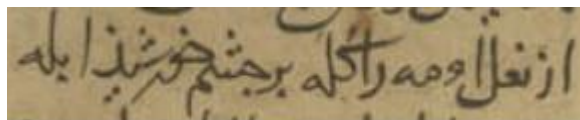 از نعل او مه را کله بر جشم خورشیذ ابله